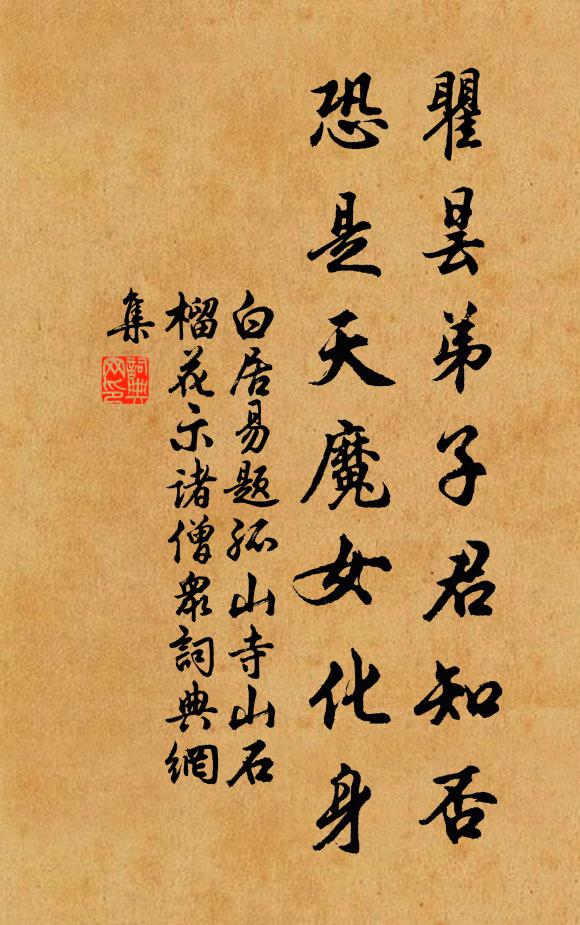 瞿曇弟子君知否
恐是天魔女化身
白居易題孤山寺山石
榴花示諸僧眾詞典網
集
詞典
网印